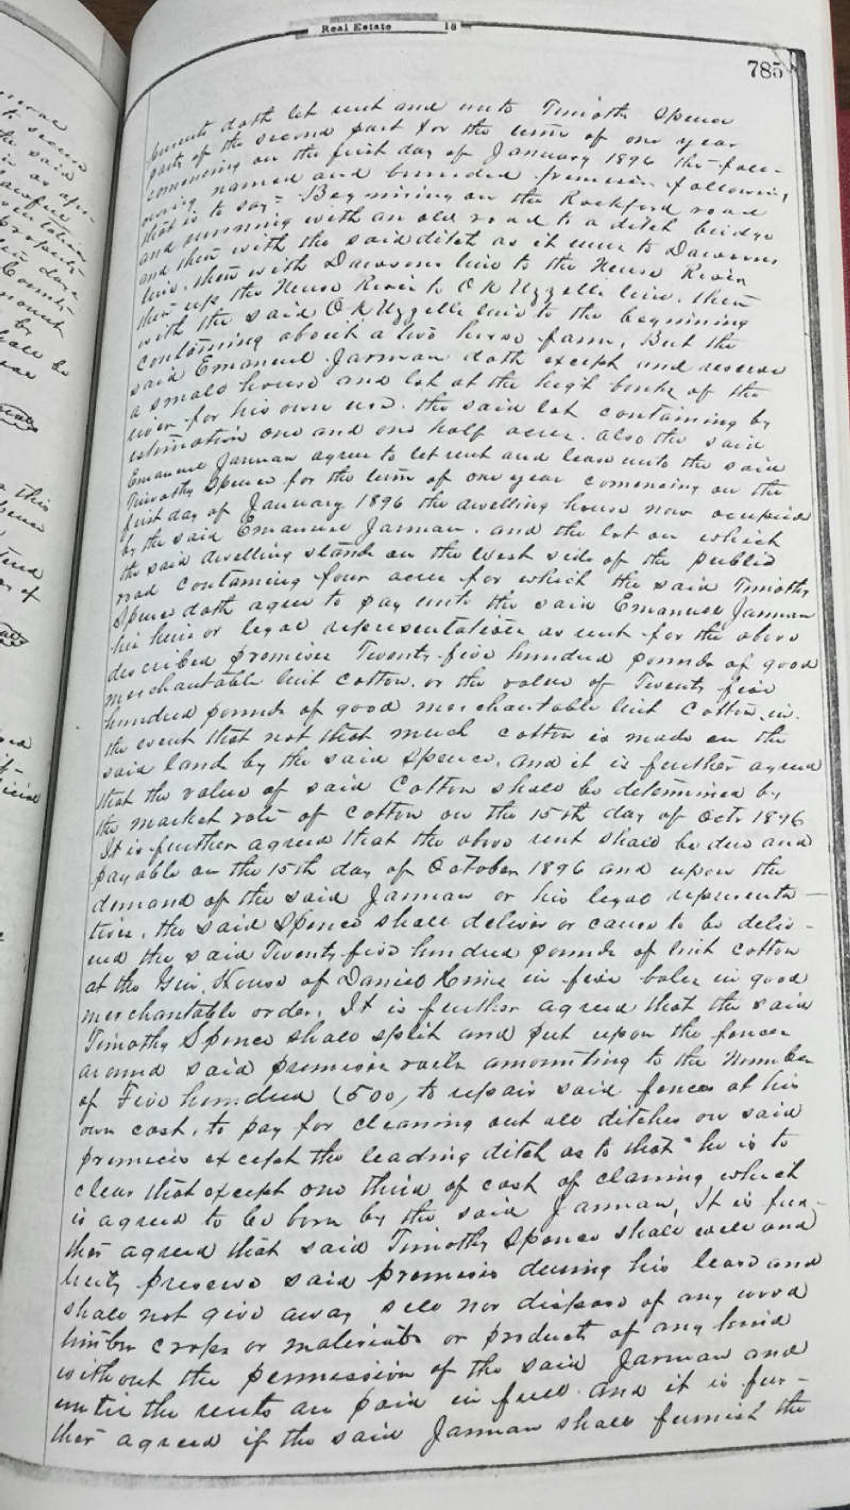 Real Estate 18
785
presents doth let rent and unto Timothy Spence
party of the second part for the term of one year
comencing on the first day of January 1896 the follo-
wing named and bounded premises following
that is to say= Beginning on the Rockford road
and running with an old road to a ditch bridge
and then with the said ditch as it runs to Dawsons
line. then with Dawsons line to the Neuse River
then up the Neuse River to O K Uzzells line. then
with the said O K Uzzells line to the beginning
containing about a two horse farm, But the
said Emanuel Jarman doth except and reserve
a small house and lot at the high banks of the
river for his own use. the said lot containing by
estimation one and one half acres. also the said
Emanuel Jarman agrees to let rent and lease unto the said
Timothy Spence for the term of one year comencing on the
first day of January 1896 the dwelling house now occupied
by the said Emanuel Jarman. and the lot on which
the said dwelling stands on the West side of the public
road containing four acres for which the said Timothy
Spence doth agree to pay unto the said Emanuel Jarman
his heirs or legal representatives as rent for the above
described premises Twenty five hundred pounds of good
merchantable lint cotton. or the value of Twenty five
hundred pounds of good merchantable lint cotton. in
the event that not that much cotton is made on the
said land by the said Spence. and it is further agreed
that the value of said Cotton shall be determined by
the market rate of cotton on the 15th day of Octr 1896
It is further agreed that the above rent shall be due and
payable on the 15th day of October 1896 and upon the
demand of the said Jarman or his legal representa-
tive. the said Spence shall deliver or cause to be deliv-
ered the said Twenty five hundred pounds of lint cotton
at the Gin House of Daniel in five bales in good
merchantable order. It is further agreed that the said
Timothy Spence shall split and put upon the fences
around said premises rails amounting to the Number
of Five hundred (500, to repair said fences at his
own cost. to pay for cleaning out all ditches on said
premices except the leading ditch as to that he is to
clear that except one third of cost of claning which
is agreed to be born by the said Jarman. It is fur-
ther agreed that said Timothy Spence shall well and
truly preserve said premises during his lease and
shall not give away sell nor dispose of any wood
timber crops or materials or products of any kind
without the permission of the said Jarman and
until the rents are paid in full. and it is fur-
ther agreed if the said Jarman shall furnish the